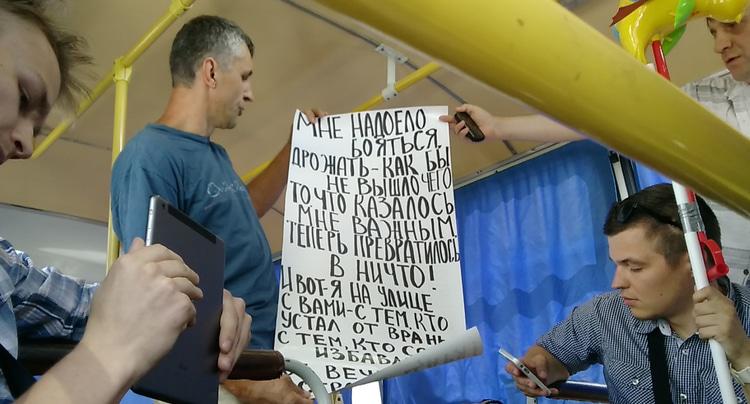 МНЕ НАДОЕЛО
БОЯТЬСЯ,
ДРОЖАТЬ-КАК БЫ
НЕ ВЫШЛО ЧЕГО
ТО ЧТО КАЗАЛОСЬ
МНЕ ВАЖНЫМ,
ТЕПЕРЬ ПРЕВРАТИЛОСЬ
В НИЧТО!
И ВОТ-Я НА УЛИЦЕ
С ВАМИ-С ТЕМ, КТО
УСТАЛ ОТ
С ТЕМ, КТО